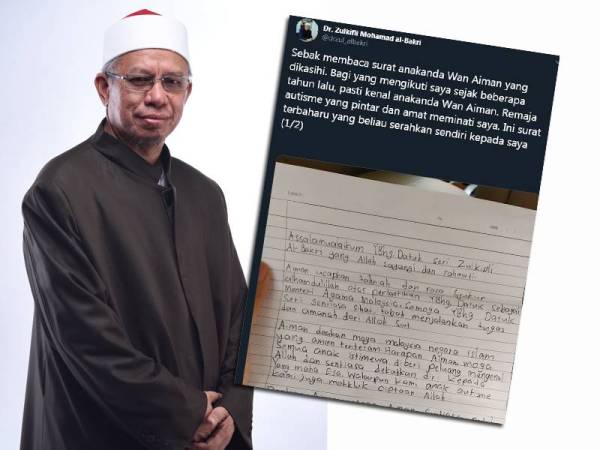 Dr. Zulkifli Mohamad al-Bakri
@drzul_albakri
Sebak membaca surat anakanda Wan Aiman yang
dikasihi. Bagi yang mengikuti saya sejak beberapa
tahun lalu, pasti kenal anakanda Wan Aiman. Remaja
autisme yang pintar dan amat meminati saya. Ini surat
terbaharu yang beliau serahkan sendiri kepada saya
(1/2)
Assalamualaikum YBhg Datuk Seri Zulkifli
Al-Bakri yang Allah sayangi dan rahmati
Aiman ucapkan tahniah dan rasa syukur
alhamdulillah atas perlantikan YBhg Datuk sebagai
Menteri Agama Malaysia. Semoga YBhg Datuk
Seri sentiasa sihat tabah menjalankan tugas
dan amanah dari Allah Swt
Aiman doakan moga malaysia negara islam
yang aman tenteram. Harapan Aiman moga
semua anak istimewa diberi peluang mengenal
Allah dan sentiasa dekatkan diri kepada
yang maha Esa. Walaupun kami anak autisme
kami juga makhluk ciptaan Allah